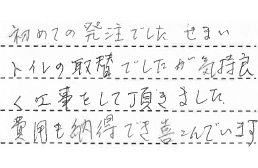 初めての発注でした せまい
トイレの取替でしたが気持良
く工事をして頂きました
費用も納得でき喜こんでいます